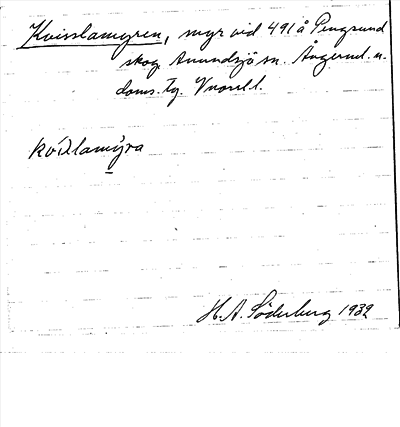 Kvisslamyren, myr vid 491 å Pengsund
skog Anundsjö sn. Ångerml. n.
doms. tg. Vnorrl.
kvislamýra
H. A. Söderberg 1932